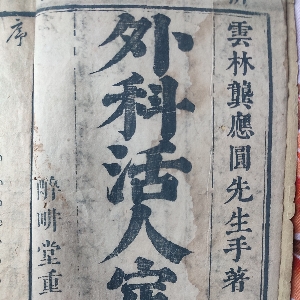 雲林龔應圓先生手著
外科活人定
醉耕堂重
序